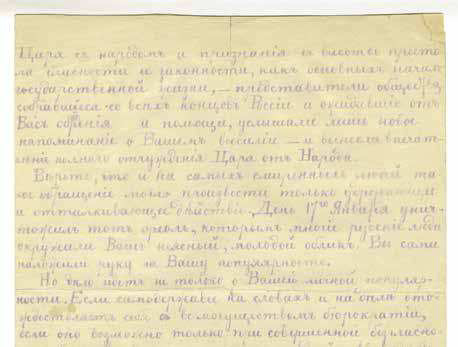 Царя съ народомъ и признанія съ высоты престо-
ла гласности и законности, какъ основныхъ началъ
государственной жизни, — представители общества,
собравшіеся со всѣхъ концевъ Россіи и ожидавшіе отъ
Васъ и помощи, услышали лишь новое
напоминаніе о Вашемъ — и вынесли впечат-
полнаго отчужденія Царя отъ Народа.
Вѣрьте, что и на самыхъ смиренныхъ людей та-
кое обращеніе могло произвести только
и отталкивающее дѣйствіе. День 17го Января унич-
тожилъ тотъ ореолъ, которымъ многіе русскіе люди
окружали Вашъ неясный, молодой обликъ. Вы сами
наложили руку на Вашу популярность.
Но дѣло идетъ не только о Вашей личной популяр-
ности. Если самодержавіе на словахъ и на дѣлѣ ото-
жествляетъ себя съ всемогуществомъ бюрократіи,
если оно возможно только при совершенной безгласно-